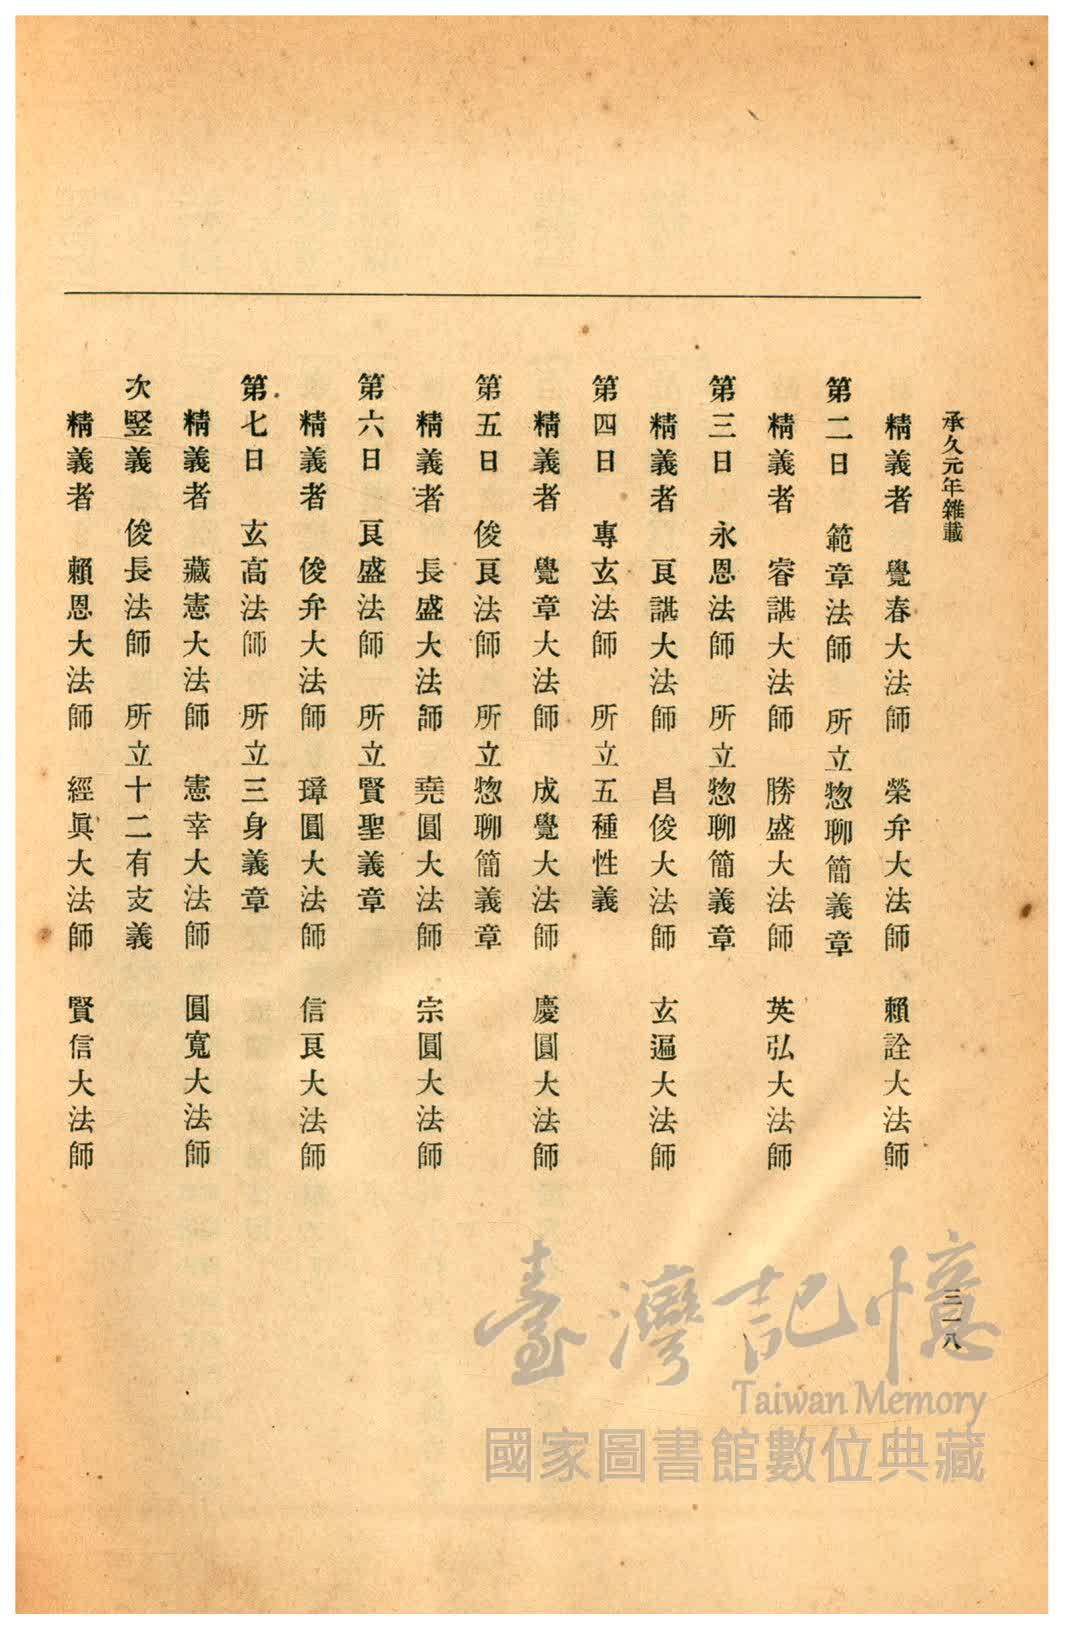 承久元年雜載
三一八
精義者　覺春大法師　榮弁大法師　賴詮大法師
第二日　範章法師　所立惣聊簡義章
精義者　睿諶大法師　勝盛大法師　英弘大法師
第三日　永恩法師　所立惣聊簡義章
精義者　良諶大法師　昌俊大法師　玄遍大法師
第四日　專玄法師　所立五種性義
精義者　覺章大法師　成覺大法師　慶圓大法師
第五日　俊良法師　所立惣聊簡義章
精義者　長盛大法師　堯圓大法師　宗圓大法師
第六日　良盛法師　所立賢聖義章
精義者　俊弁大法師　璋圓大法師　信良大法師
第七日　玄高法師　所立三身義章
精義者　藏憲大法師　憲幸大法師　圓寬大法師
次竪義　俊長法師　所立十二有支義
精義者　賴恩大法師　經眞大法師　賢信大法師
臺灣記憶
Taiwan Memory
國家圖書館數位典藏